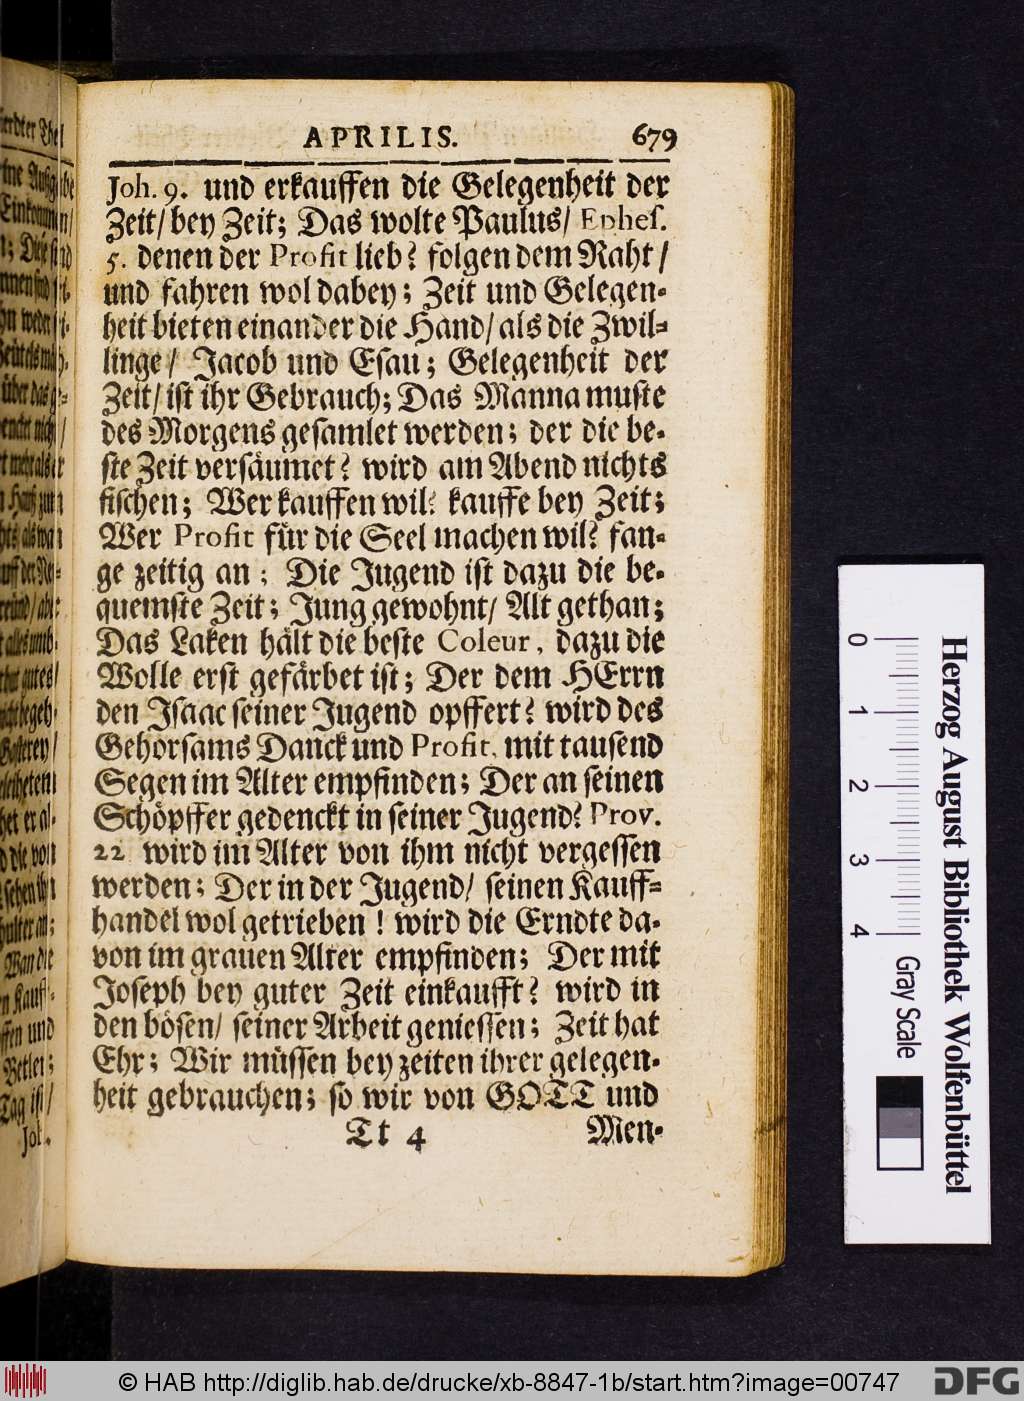 APRILIS. 679
Joh. 9. und erkauffen die Gelegenheit der
Zeit/ bey Zeit; Das wolte Paulus/ Ephes.
5. denen der Profit lieb? folgen dem Raht/
und fahren wol dabey; Zeit und Gelegen-
heit bieten einander die Hand/ als die Zwil-
linge/ Jacob und Esau; Gelegenheit der
Zeit/ ist ihr Gebrauch; Das Manna muste
des Morgens gesamlet werden; der die be-
ste Zeit versäumet? wird am Abend nichts
fischen; Wer kauffen wil? kauffe bey Zeit;
Wer Profit für die Seel machen wil? fan-
ge zeitig an; Die Jugend ist dazu die be-
quemste Zeit; Jung gewohnt/ Alt gethan;
Das Laken hält die beste Coleur, dazu die
Wolle erst gefärbet ist; Der dem HErrn
den Isaac seiner Jugend opffert? wird des
Gehorsams Danck und Profit, mit tausend
Segen im Alter empfinden; Der an seinen
Schöpffer gedenckt in seiner Jugend? Prov.
22 wird im Alter von ihm nicht vergessen
werden; Der in der Jugend/ seinen Kauff-
handel wol getrieben! wird die Erndte da-
von im grauen Alter empfinden; Der mit
Joseph bey guter Zeit einkaufft? wird in
den bösen/ seiner Arbeit geniessen; Zeit hat
Ehr; Wir müssen bey zeiten ihrer gelegen-
heit gebrauchen; so wir von GOTT und
Tt 4 Men-
Herzog August Bibliothek Wolfenbüttel
0 1 2 3 4 Gray Scale
© HAB http://diglib.hab.de/drucke/xb-8847-1b/start.htm?image=00747
DFG